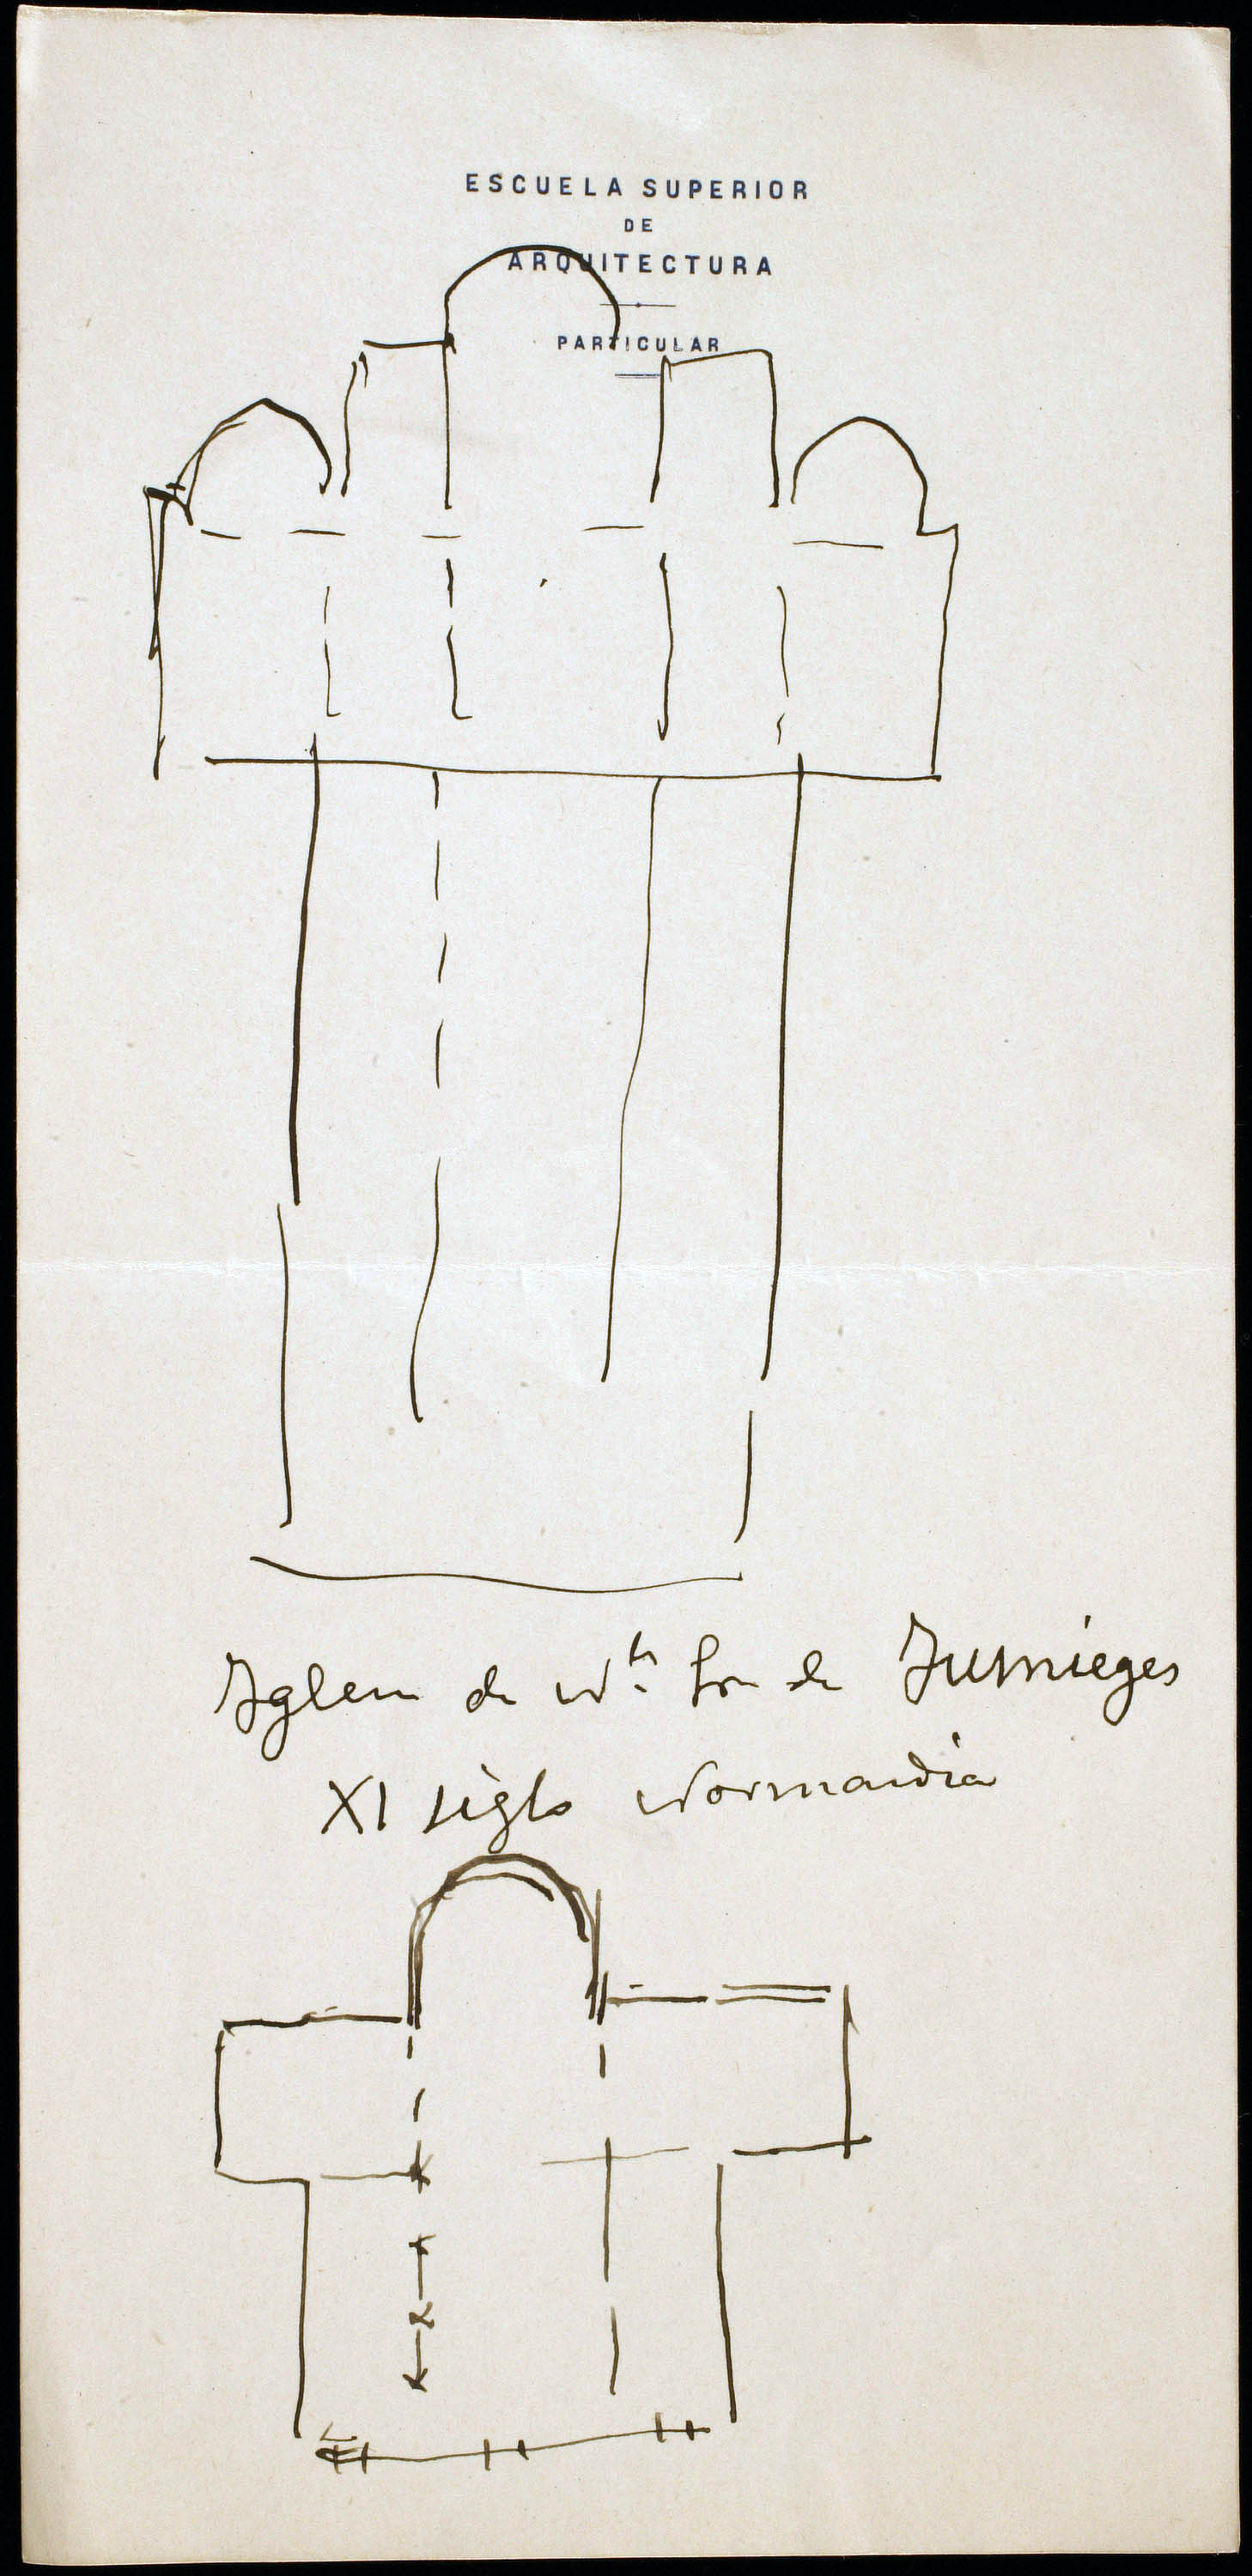 ESCUELA SUPERIOR
DE
ARQUITECTURA
PARTICULAR
de de Jumieges
XI siglo Normandia